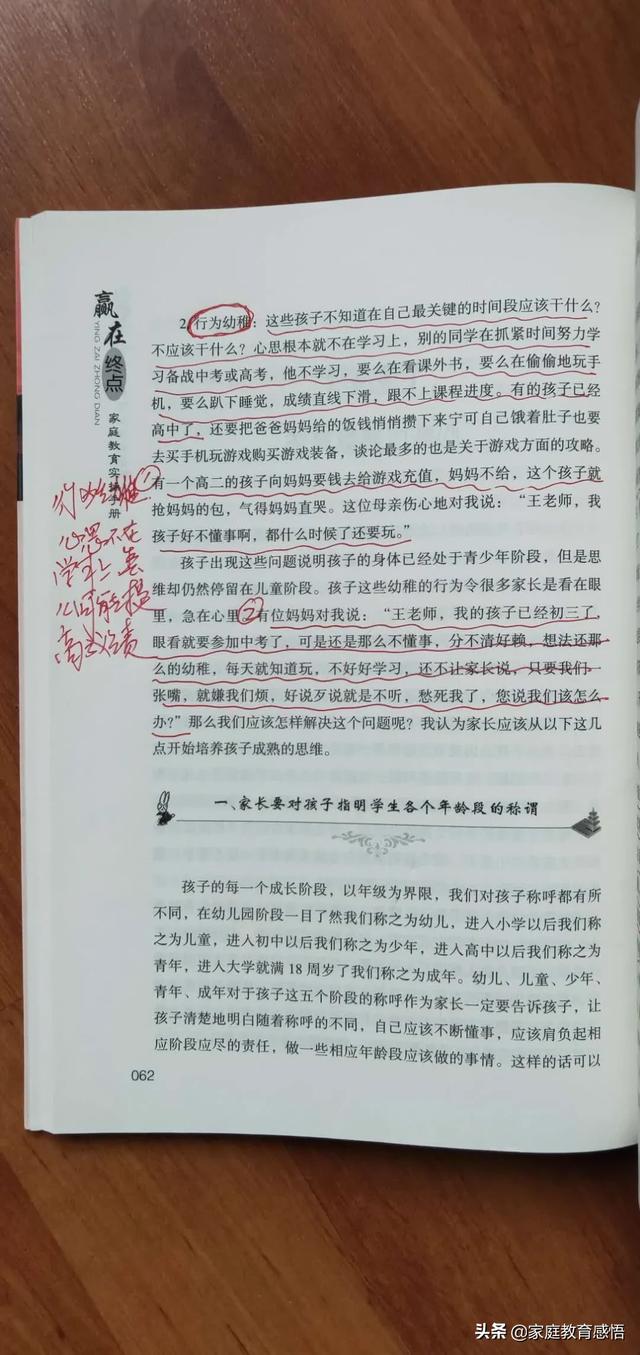 赢在终点
YING ZAI ZHONG DIAN
家庭教育实操手册
2.行为幼稚：这些孩子不知道在自己最关键的时间段应该干什么？
不应该干什么？心思根本就不在学习上，别的同学在抓紧时间努力学
习备战中考或高考，他不学习，要么在看课外书，要么在偷偷地玩手
机，要么趴下睡觉，成绩直线下滑，跟不上课程进度。有的孩子已经
高中了，还要把爸爸妈妈给的饭钱悄悄攒下来宁可自己饿着肚子也要
去买手机玩游戏购买游戏装备，谈论最多的也是关于游戏方面的攻略。
有一个高二的孩子向妈妈要钱去给游戏充值，妈妈不给，这个孩子就
抢妈妈的包，气得妈妈直哭。这位母亲伤心地对我说：“王老师，我
孩子好不懂事啊，都什么时候了还要玩。”
孩子出现这些问题说明孩子的身体已经处于青少年阶段，但是思
维却仍然停留在儿童阶段。孩子这些幼稚的行为令很多家长是看在眼
里，急在心里②有位妈妈对我说：“王老师，我的孩子已经初三了，
眼看就要参加中考了，可是还是那么不懂事，分不清好赖，想法还那
么的幼稚，每天就知道玩，不好好学习，还不让家长说，只要我们一
张嘴，就嫌我们烦，好说歹说就是不听，愁死我了，您说我们该怎么
办？”那么我们应该怎样解决这个问题呢？我认为家长应该从以下这几
点开始培养孩子成熟的思维。
一、家长要对孩子指明学生各个年龄段的称谓
孩子的每一个成长阶段，以年级为界限，我们对孩子称呼都有所
不同，在幼儿园阶段一目了然我们称之为幼儿，进入小学以后我们称
之为儿童，进入初中以后我们称之为少年，进入高中以后我们称之为
青年，进入大学就满 18 周岁了我们称之为成年。幼儿、儿童、少年、
青年、成年对于孩子这五个阶段的称呼作为家长一定要告诉孩子，让
孩子清楚地明白随着称呼的不同，自己应该不断懂事，应该肩负起相
应阶段应尽的责任，做一些相应年龄段应该做的事情。这样的话可以
062
①
心思不在
学习上
头条 @家庭教育感悟